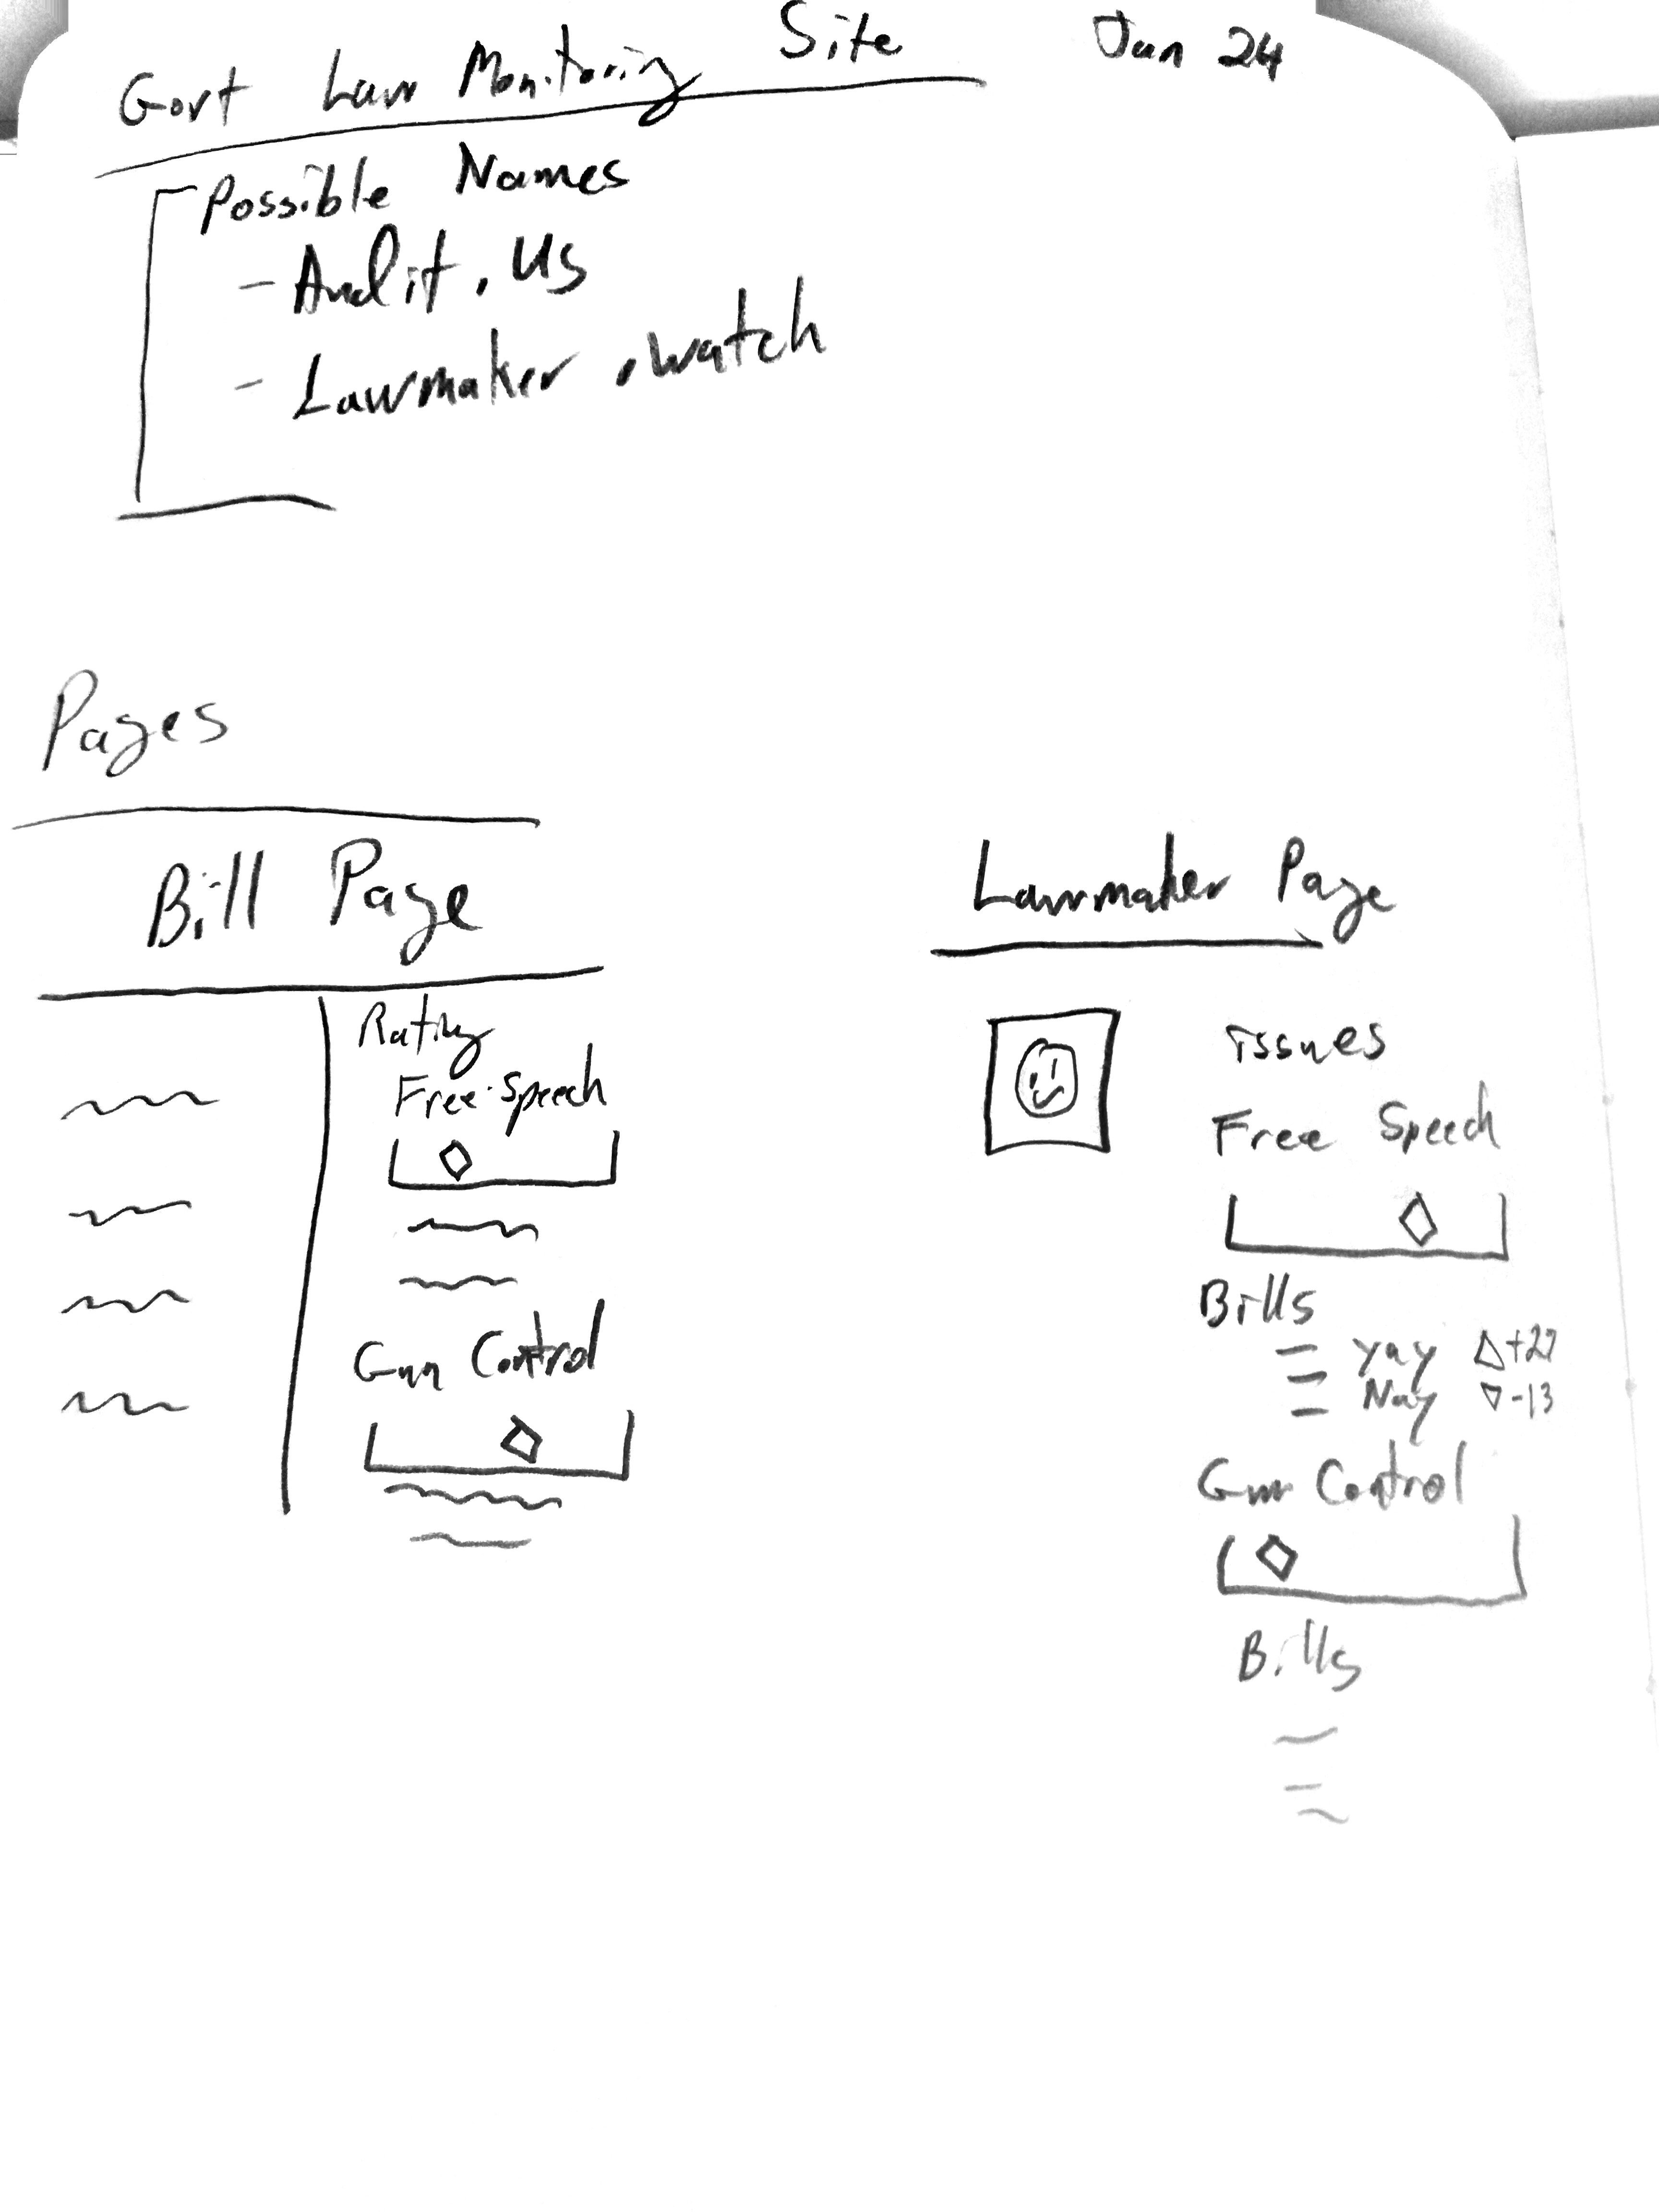 Govt Law Monitoring Site Jan 24
Possible Names
- Audit.us
- Lawmaker.watch
Pages
Bill Page
Rating
Free Speech
Gun Control
Lawmaker Page
issues
Free Speech
Bills
Yay △+27
Nay ▽-13
Gun Control
Bills